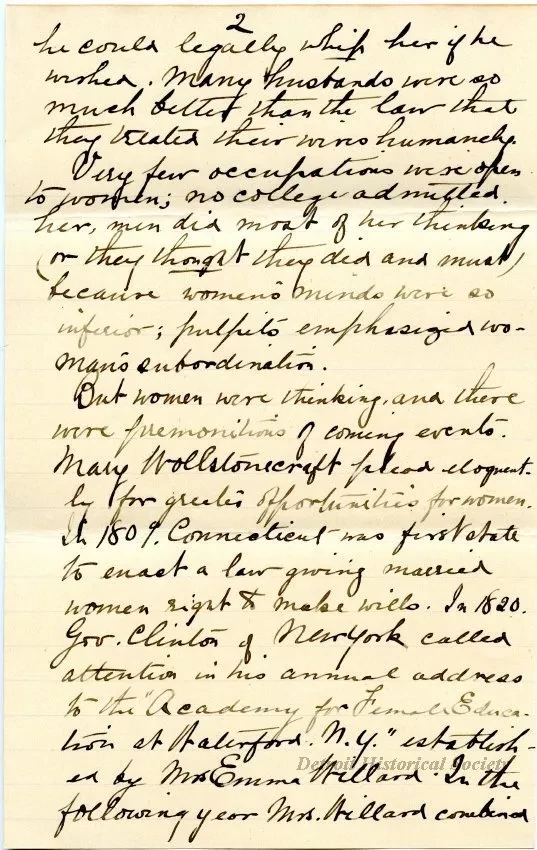 2
he could legally whip her if he
wished. Many husbands were so
much better than the law that
they treated their wives humanely.
Very few occupations were open
to women; no college admitted
her, men did most of her thinking
(or they thought they did and must)
because women's minds were so
inferior; pulpits emphasized wo-
man's subordination.
But women were thinking, and there
were premonitions of coming events.
Mary Wollstonecraft plead eloquent-
ly for greater opportunities for women.
In 1809. Connecticut was first state
to enact a law giving married
women right to make wills. In 1820.
Gov. Clinton of New York called
attention in his annual address
to the "Academy for Female Educa-
tion at Waterford. N.Y." establish-
ed by Mrs Emma Willard. In the
following year Mrs. Willard combined
Detroit Historical Society